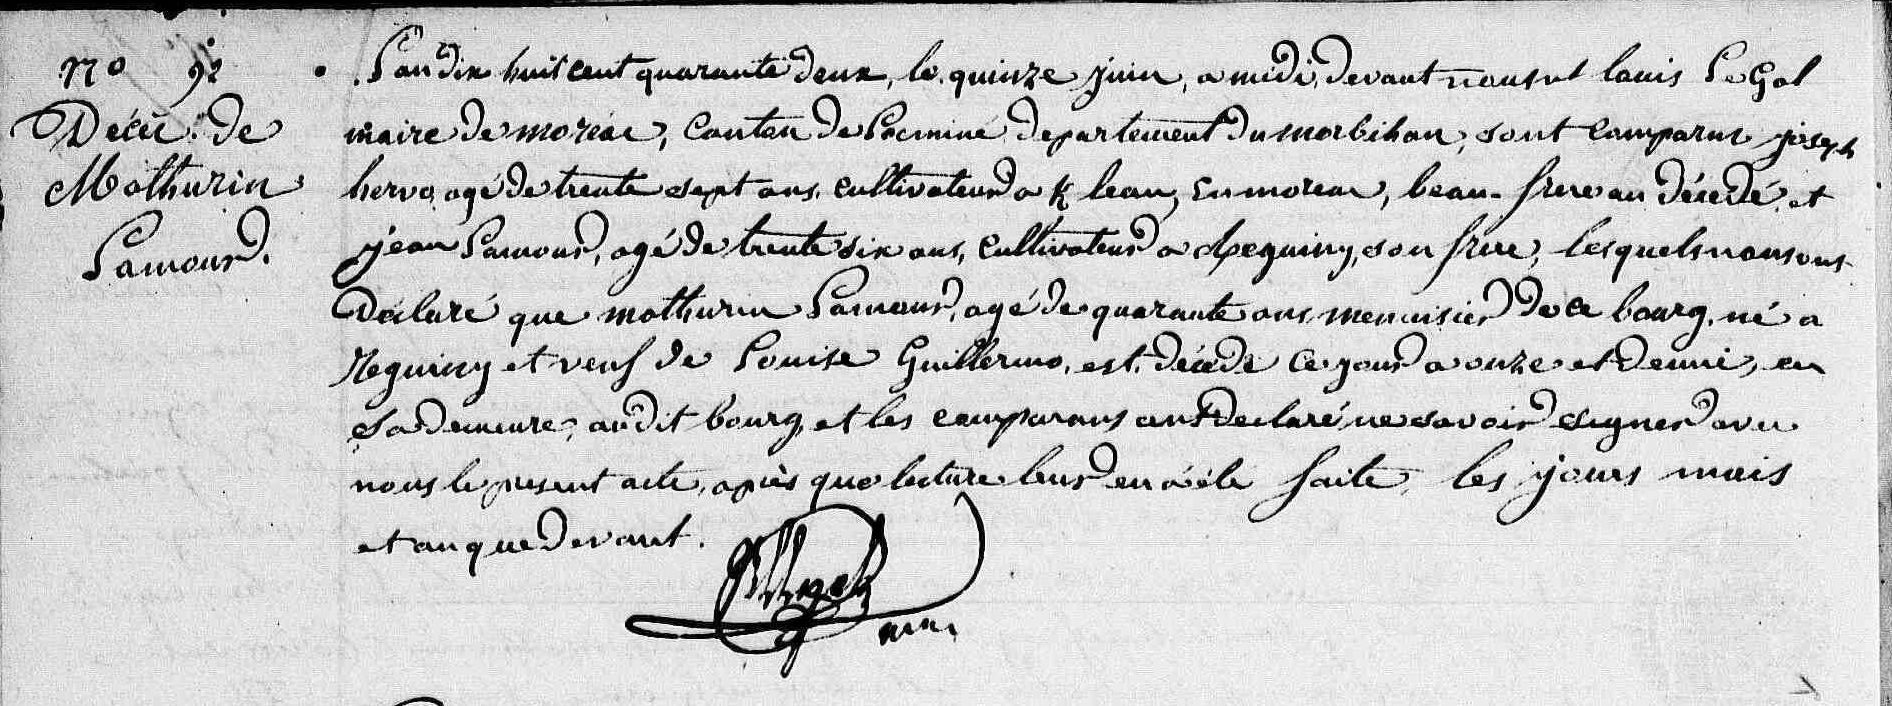 No 92
Décès de
Mathurin
Lamour.
L'an dix huit cent quarante deux, le quinze juin, a midi, devant nous Louis Le Gal
maire de moréac, canton de Locminé departement du morbihan, sont comparus joseph
hervo, agé de trente sept ans, cultivateur a K lean, en moréac, beau-frere au décédé, et
jean Lamour, agé de trente six ans, cultivateur a Reguiny, son frere, lesquels nous ont
Déclaré que mathurin Lamour, agé de quarante ans, menuisier de ce bourg, né a
Reguiny et veuf de Louise Guillermo, est décédé ce jour a onze et demie, en
sa demeure, audit bourg, et les comparans ont declaré ne savoir signer avec
nous le présent acte, après que lecture leur en a été faite, les jours mois
et an que devant.
maire